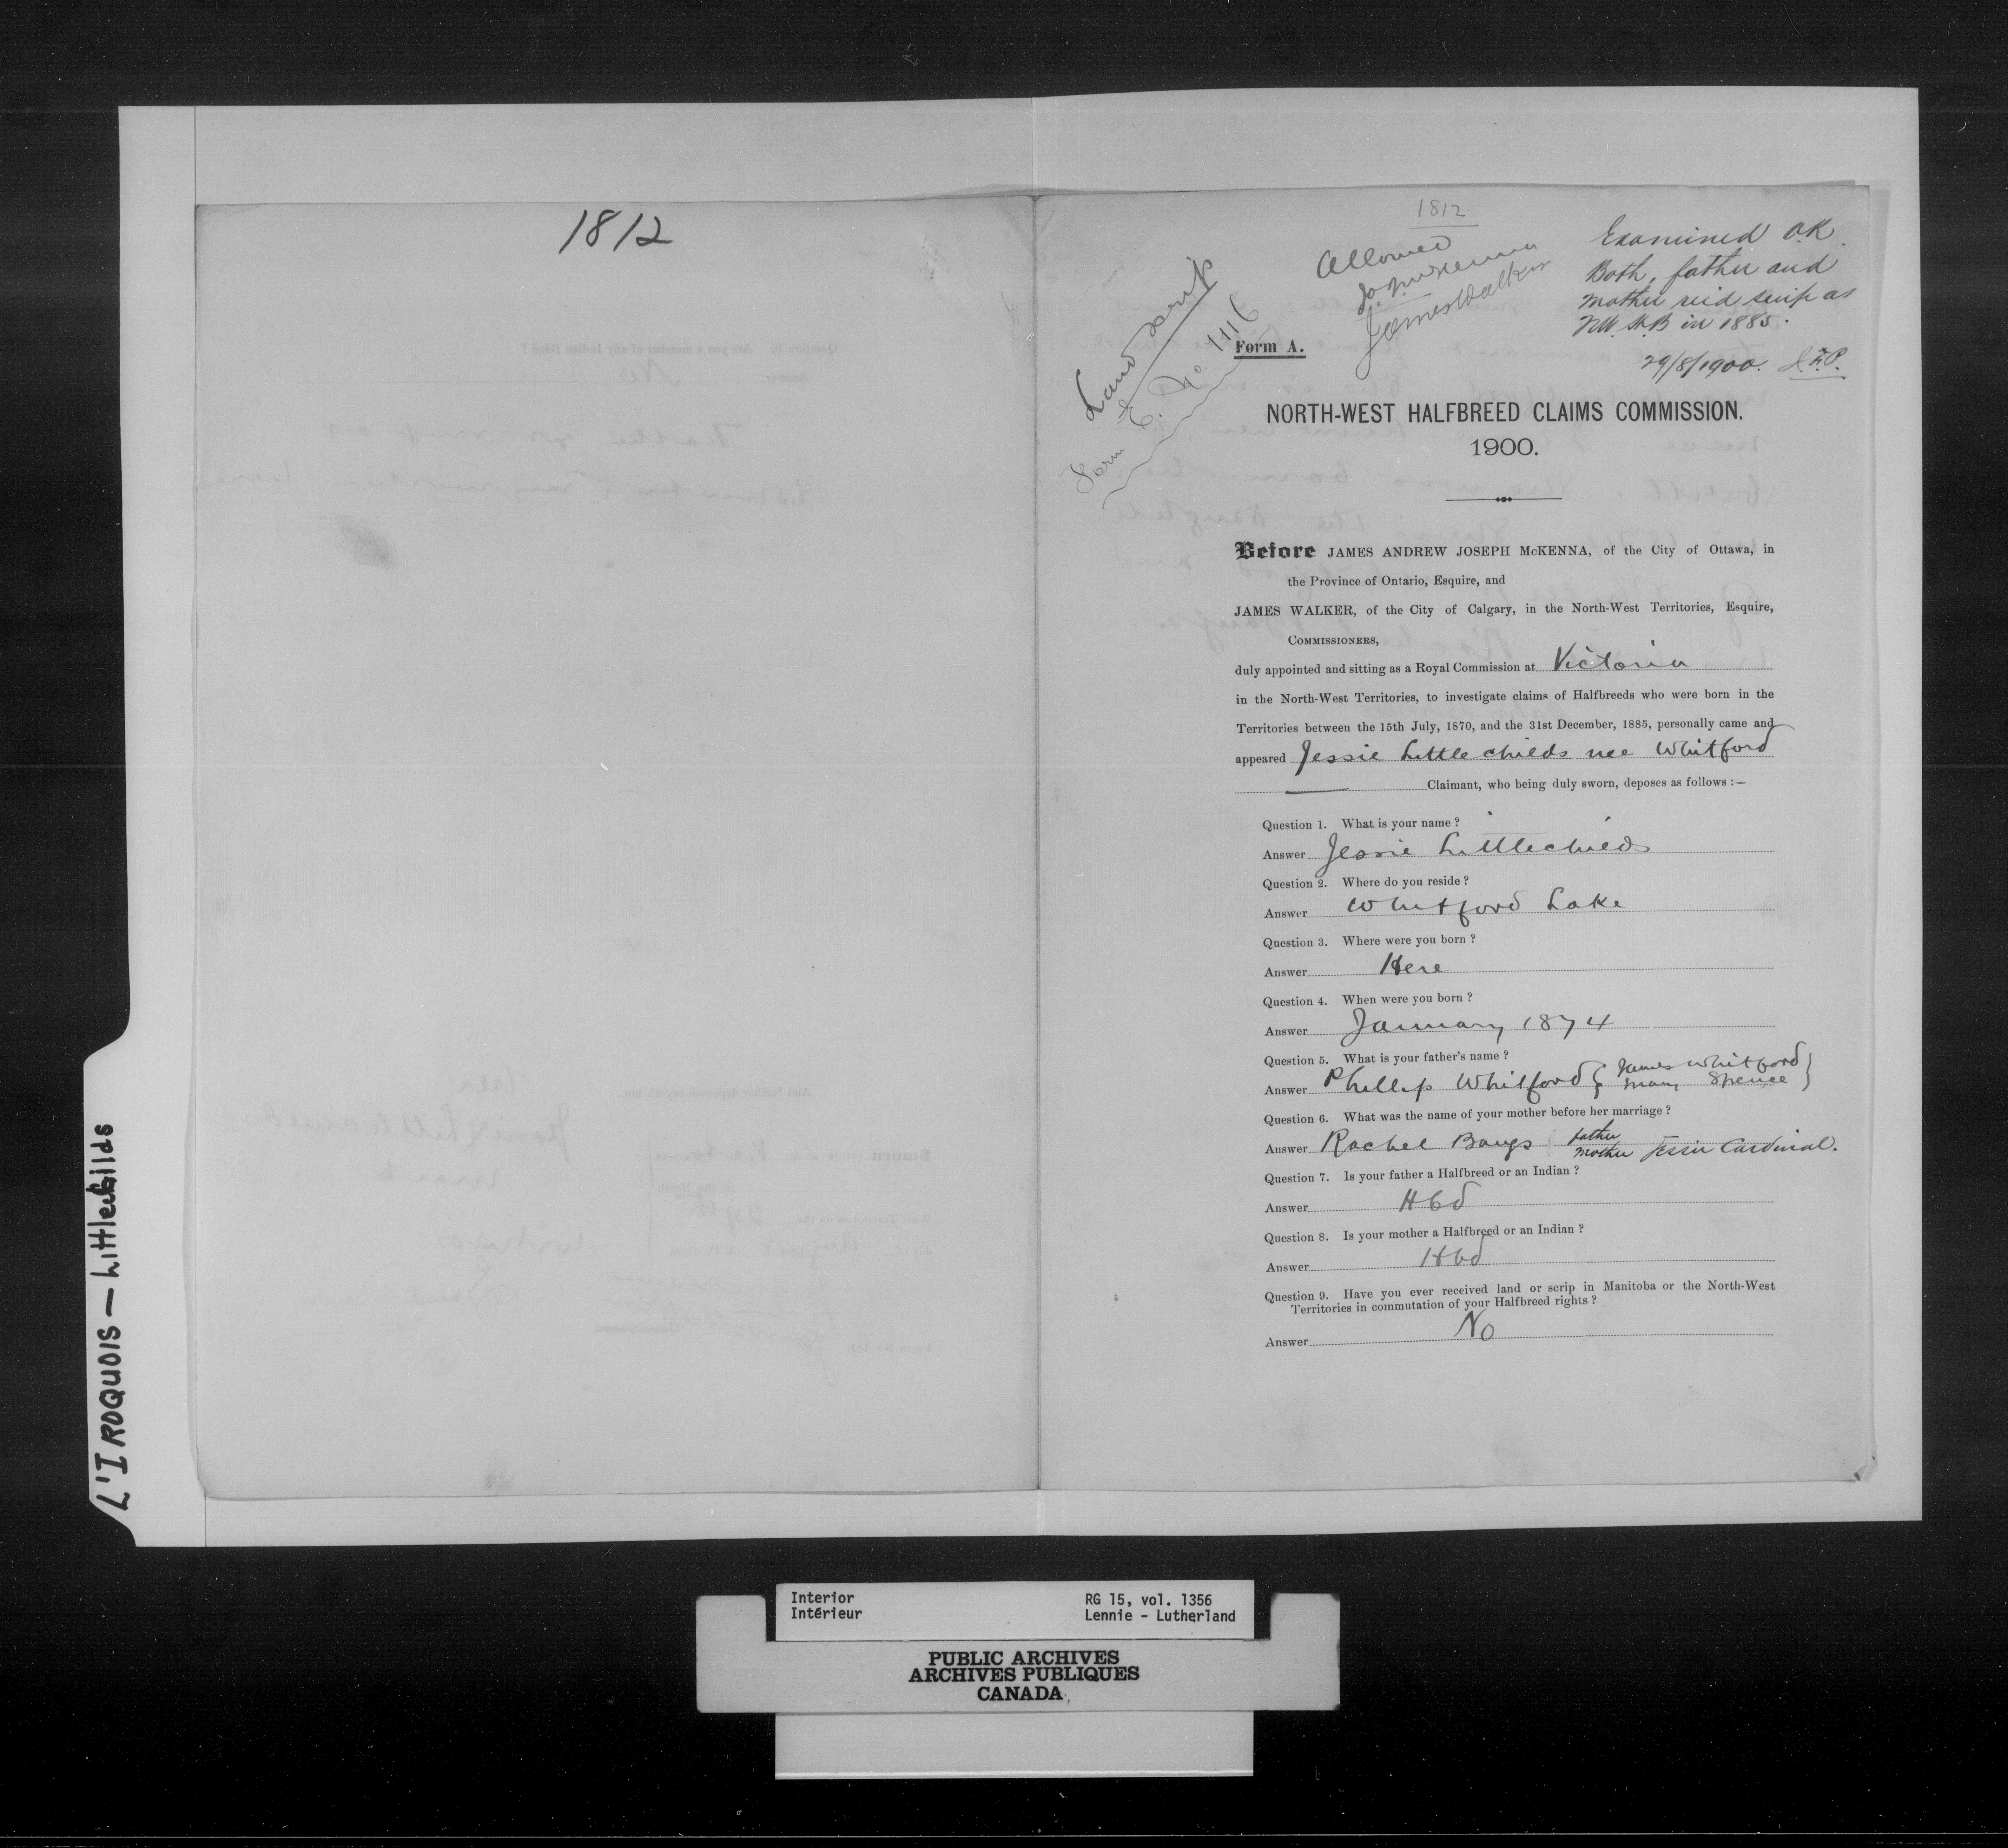 1812
1812
Allowed
J.A.J. McKenna
James Walker
Examined O.K.
Both, father and
mother rec'd scrip as
N.W. H.B in 1885.
29/8/1900.
Land Scrip
Form E. No. 1116
Form A.
NORTH-WEST HALFBREED CLAIMS COMMISSION.
1900.
Before JAMES ANDREW JOSEPH McKENNA, of the City of Ottawa, in
the Province of Ontario, Esquire, and
JAMES WALKER, of the City of Calgary, in the North-West Territories, Esquire,
COMMISSIONERS,
duly appointed and sitting as a Royal Commission at Victoria
in the North-West Territories, to investigate claims of Halfbreeds who were born in the
Territories between the 15th July, 1870, and the 31st December, 1885, personally came and
appeared Jessie Littlechilds nee Whitford
Claimant, who being duly sworn, deposes as follows :—
Question 1. What is your name ?
Answer Jessie Littlechilds
Question 2. Where do you reside ?
Answer Whitford Lake
Question 3. Where were you born ?
Answer Here
Question 4. When were you born ?
Answer January 1874
Question 5. What is your father's name ?
Answer Phillip Whitford { James Whitford
Mary Spence }
Question 6. What was the name of your mother before her marriage ?
Answer Rachel Bangs father
mother Jessie Cardinal.
Question 7. Is your father a Halfbreed or an Indian ?
Answer Hbd
Question 8. Is your mother a Halfbreed or an Indian ?
Answer Hbd
Question 9. Have you ever received land or scrip in Manitoba or the North-West
Territories in commutation of your Halfbreed rights ?
Answer No
L'IROQUOIS — Littlechilds
Interior
Intérieur
RG 15, vol. 1356
Lennie - Lutherland
PUBLIC ARCHIVES
ARCHIVES PUBLIQUES
CANADA